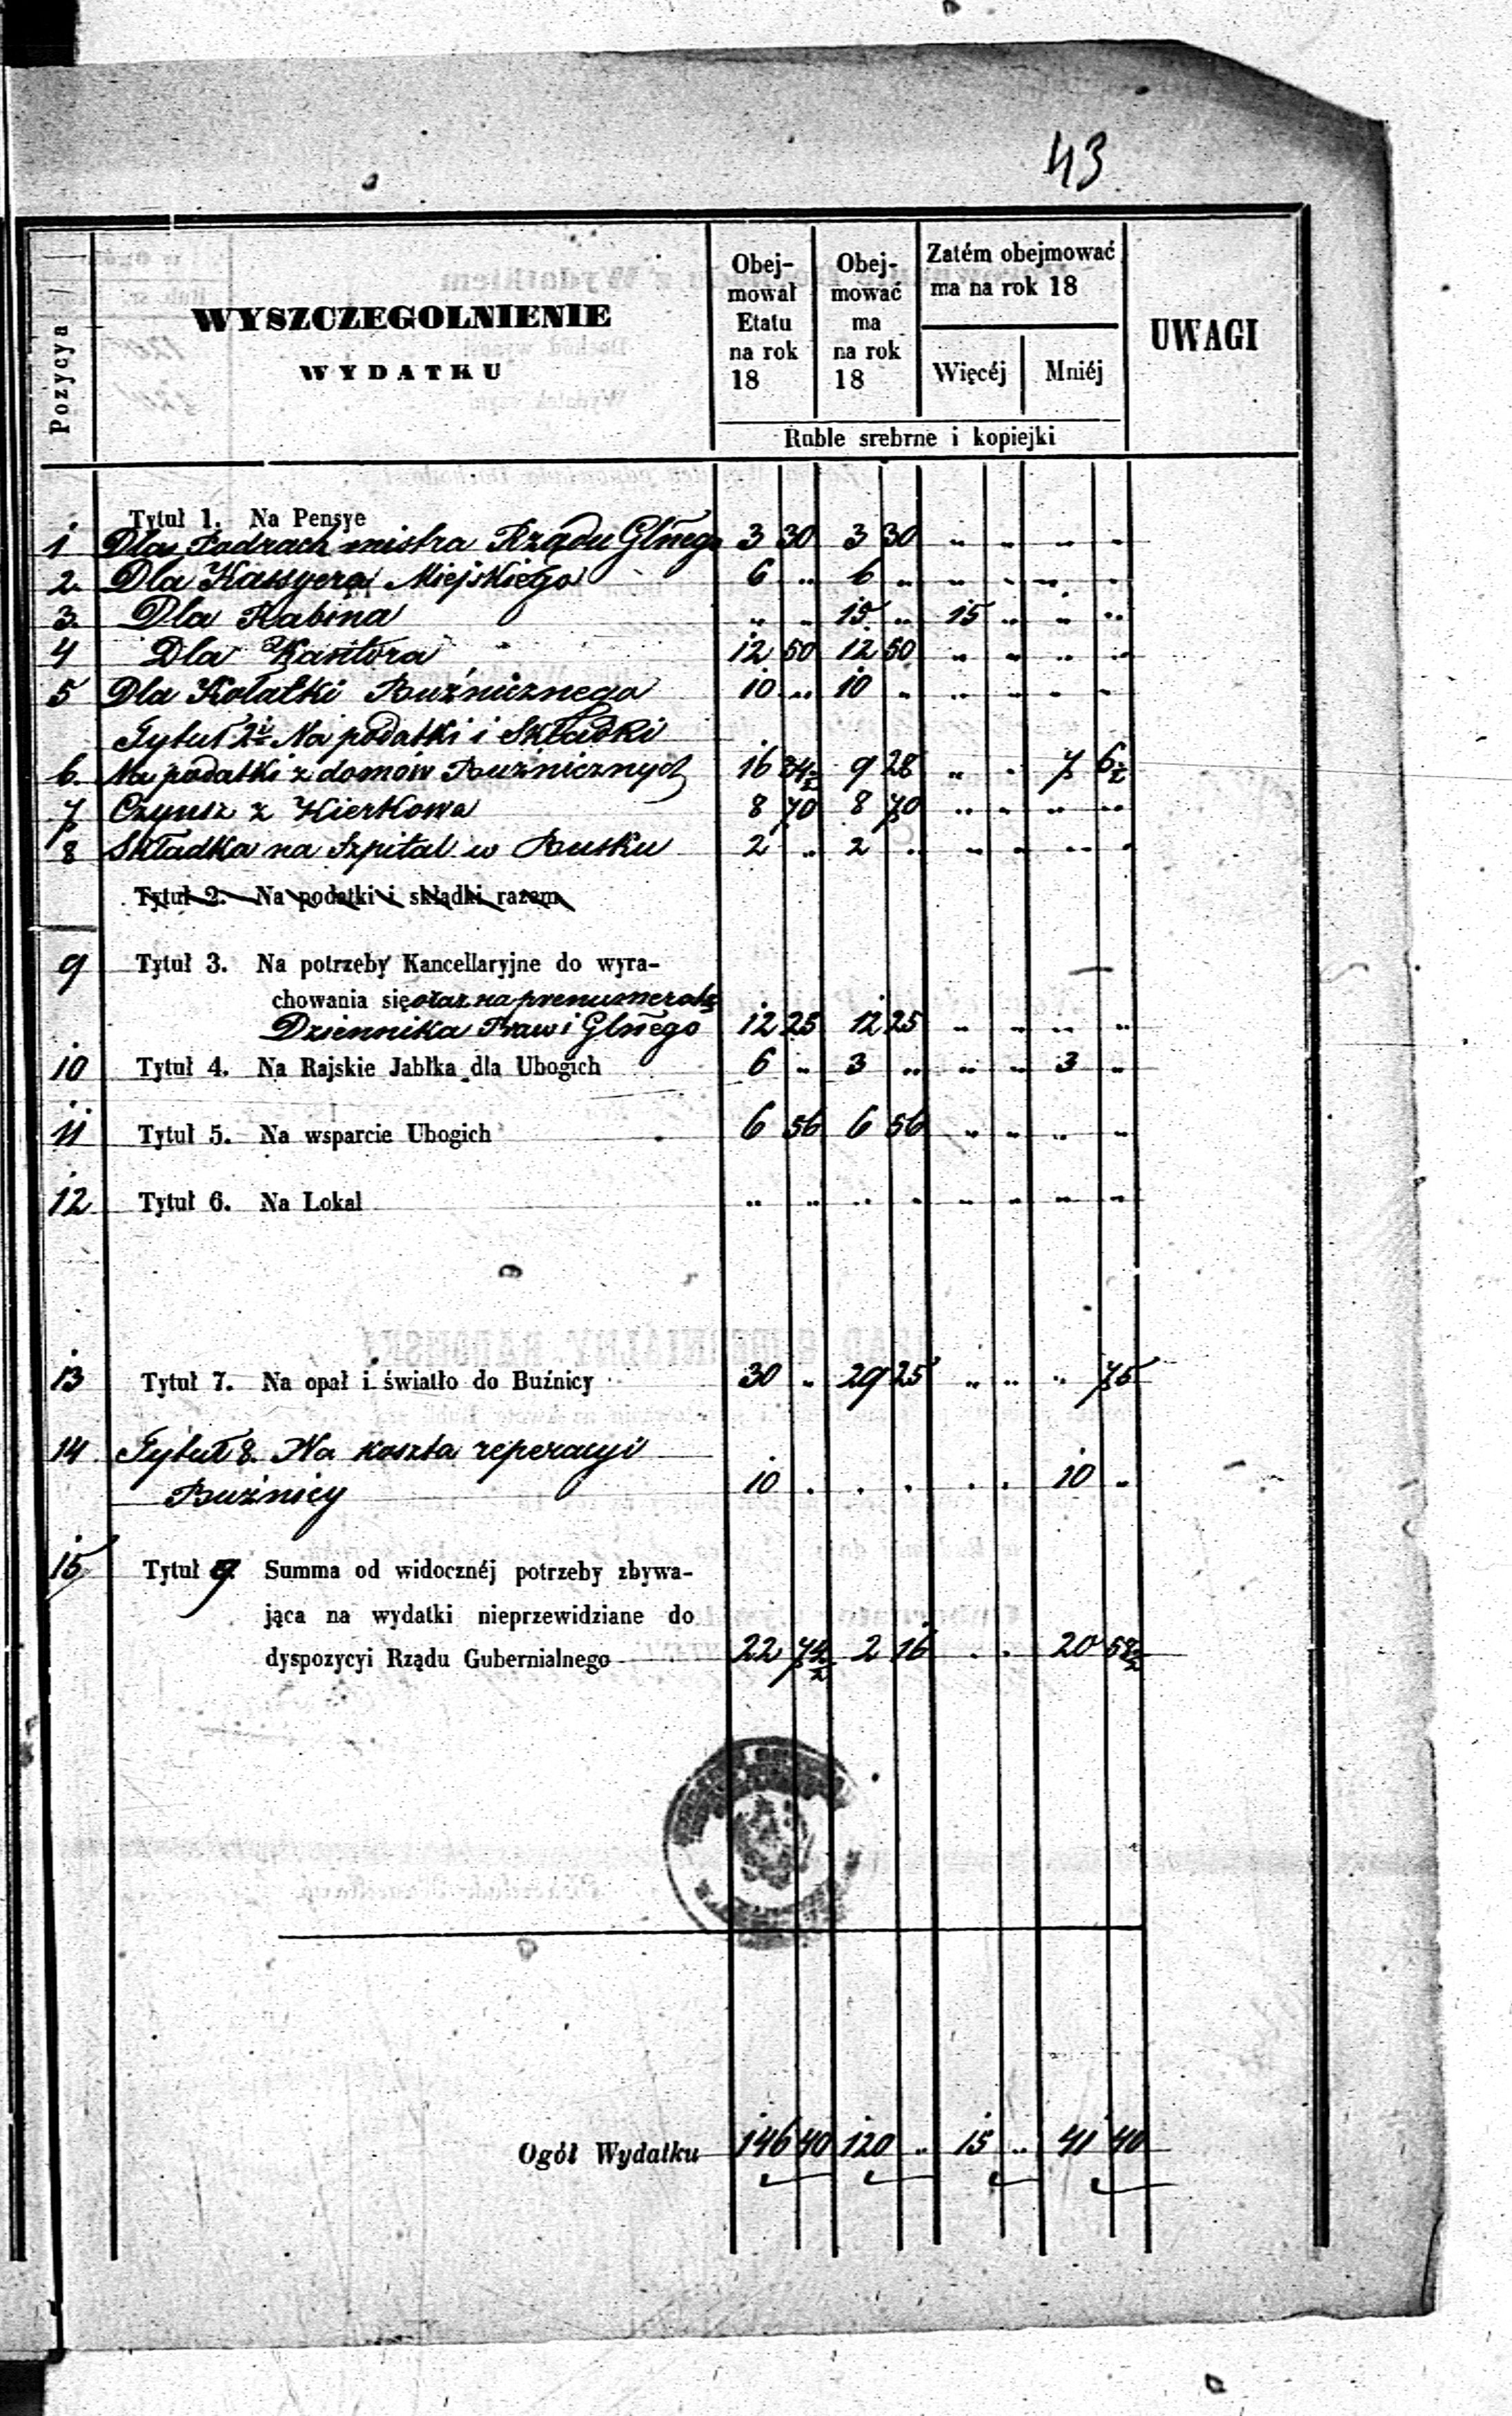 43
Pozycya
WYSZCZEGOLNIENIE
WYDATKU
Obej-
mował
Etatu
na rok
18
Obej-
mować
ma
na rok
18
Zatém obejmować
ma na rok 18
Więcéj
Mniéj
UWAGI
Ruble srebrne i kopiejki
Tytuł 1. Na Pensye
1 Dla Podrachmistra Rządu Glnego 3 30 3 30 .. .. .. ..
2. Dla Kassyera Miejskiego 6 .. 6 .. .. .. .. ..
3. Dla Rabina .. .. 15 .. 15 .. .. ..
4 Dla Kantora 12 50 12 50 .. .. .. ..
5 Dla Kołatki Buźnicznego 10 .. 10 .. .. .. .. ..
Tytuł 2i Na podatki i Składki
6. Na podatki z domów Buźnicznych 16 34½ 9 28 .. .. 7 6½
7 Czynsz z Kierkowa 8 70 8 70 .. .. .. ..
8 Składka na Szpital w Busku 2 .. 2 .. .. .. .. ..
Tytuł 2. Na podatki i składki razem
9 Tytuł 3. Na potrzeby Kancellaryjne do wyra-
chowania się oraz na prenumeratę
Dziennika Praw i Glnego 12 25 12 25 .. .. .. ..
10 Tytuł 4. Na Rajskie Jabłka dla Ubogich 6 .. 3 .. .. .. 3 ..
11 Tytuł 5. Na wsparcie Ubogich 6 56 6 56 .. .. .. ..
12 Tytuł 6. Na Lokal .. .. .. .. .. .. .. ..
13 Tytuł 7. Na opał i światło do Buźnicy 30 .. 29 25 .. .. .. 75
14 Tytuł 8. Na koszta reperacyi
Buźnicy 10 . . . . . 10 ..
15 Tytuł 9 Summa od widocznéj potrzeby zbywa-
jąca na wydatki nieprzewidziane do
dyspozycyi Rządu Gubernialnego 22 74½ 2 16 . . 20 58½
Ogół Wydatku 146 40 120 .. 15 .. 41 40